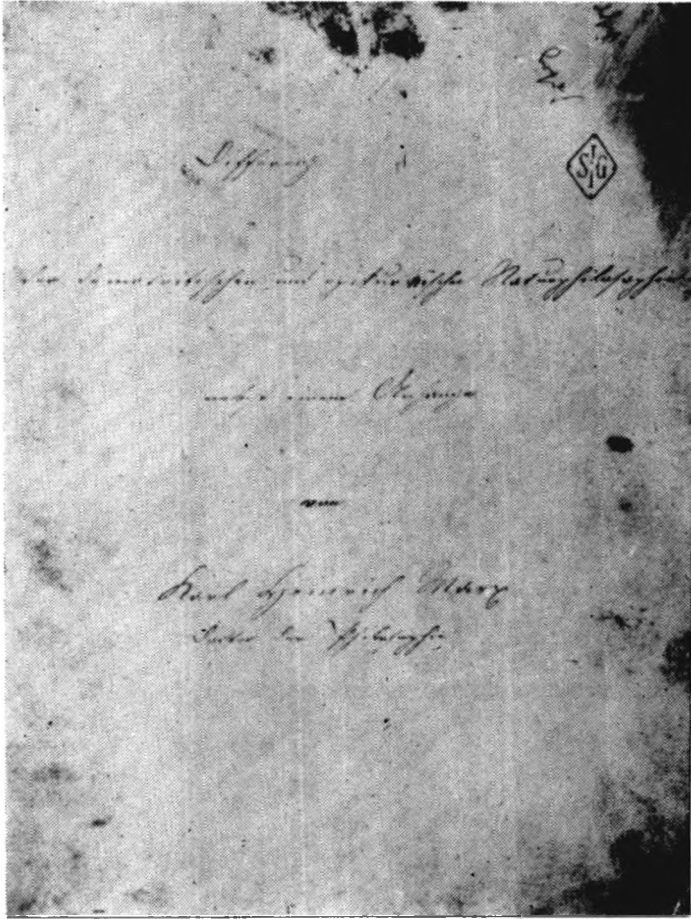 Differenz
der demokritischen und epikureischen Naturphilosophie
nebst einem Anhange
von
Karl Heinrich Marx
Doctor der Philosophie